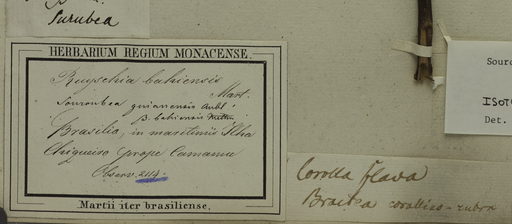 Surubea
HERBARIUM REGIUM MONACENSE.
Ruyschia bahiensis
Mart.
Souroubea guianensis Aubl.
β. bahiensis Wittm.
Brasilia, in maritimis Ilha
Chigueiro prope Camamu
Observ. 2114.
Martii iter brasiliense.
Corolla flava
Bractea corallino-rubra
Sour
ISOT
Det.